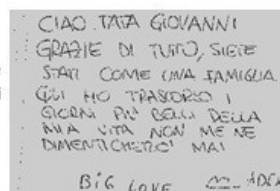 CIAO TATA GIOVANNI
GRAZIE DI TUTTO, SIETE
STATI COME UNA FAMIGLIA.
QUI HO TRASCORSO I
GIORNI PIÙ BELLI DELLA
MIA VITA NON ME NE
DIMENTICHERO' MAI
BIG LOVE